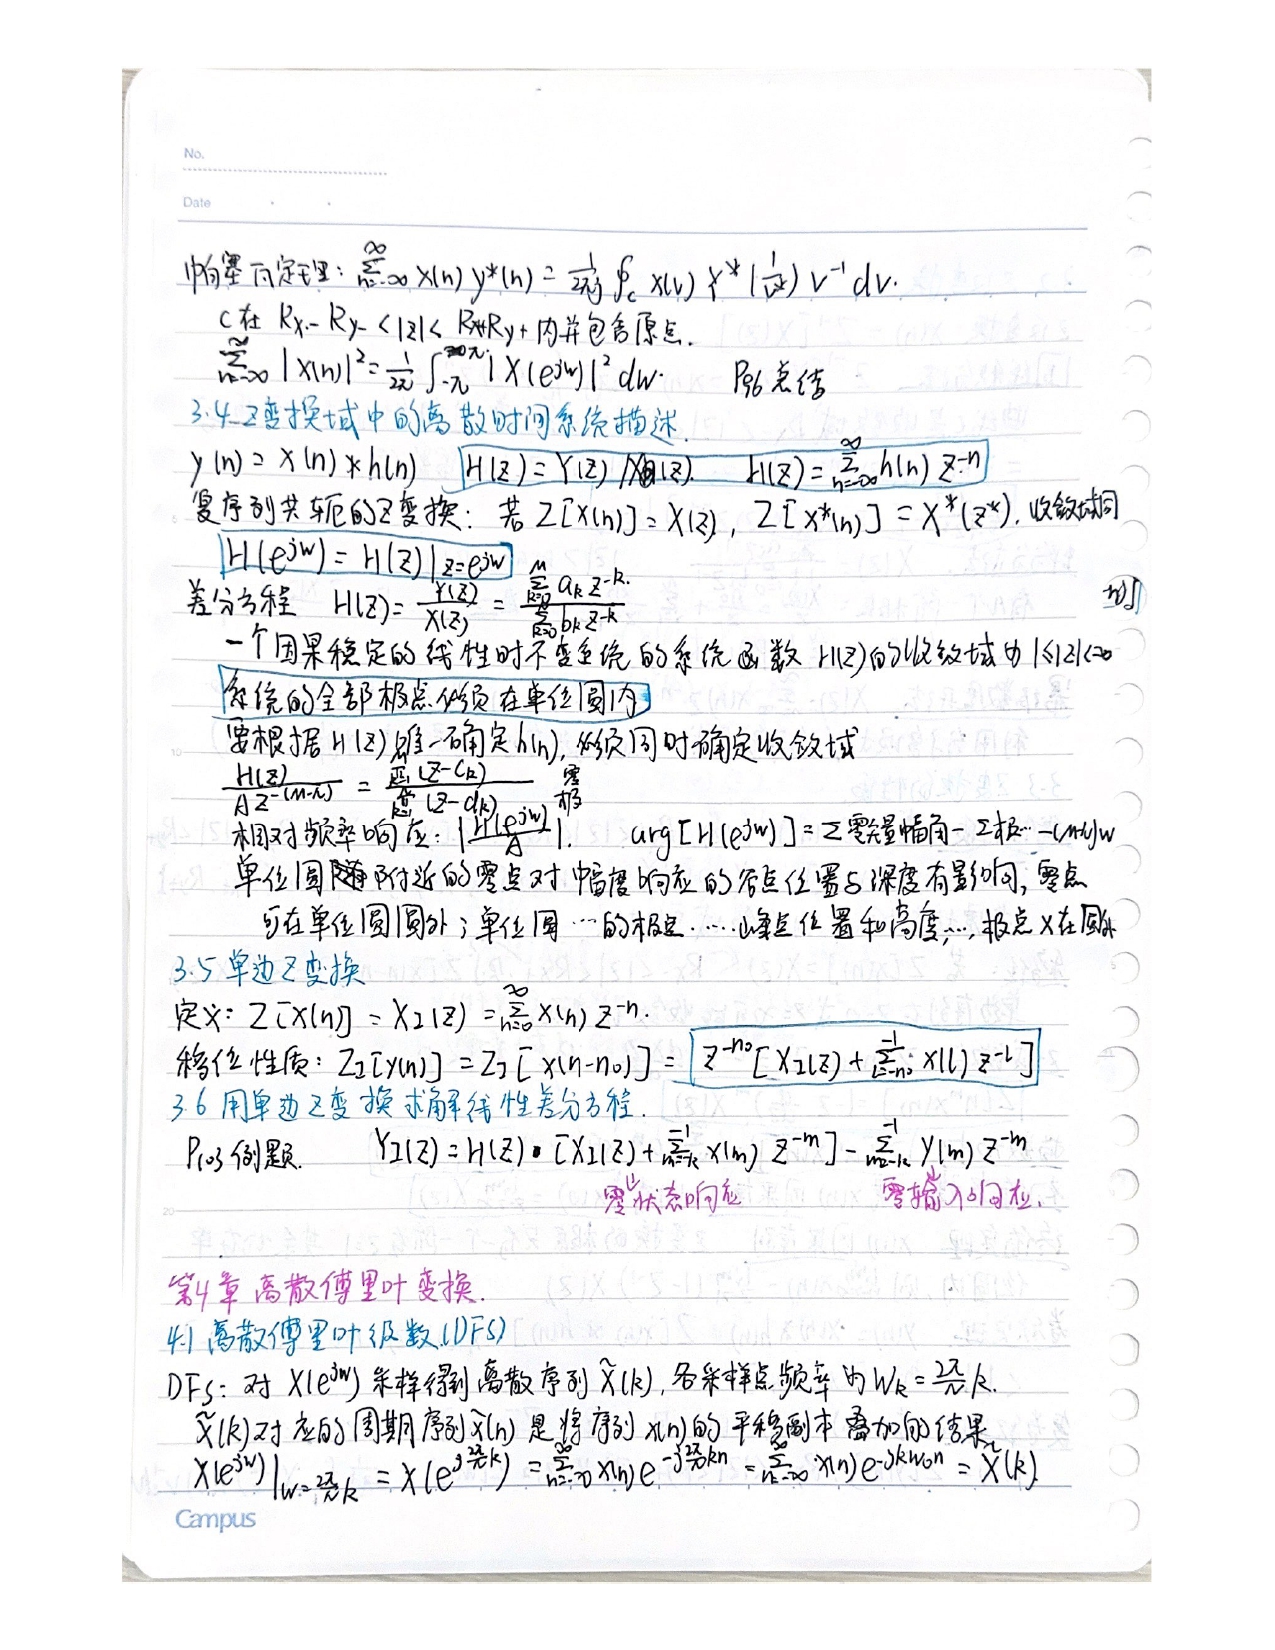 No.
Date
帕塞瓦定理: \sum_{n=-\infty}^{\infty} x(n) y*(n) = \frac{1}{2\pi j} \oint_c X(v) Y*(\frac{1}{v*}) v^{-1} dv.
C在 Rx- Ry- < |z| < Rx+Ry+ 内并包含原点.
\sum_{n=-\infty}^{\infty} |x(n)|^2 = \frac{1}{2\pi} \int_{-\pi}^{\pi} |X(e^{jw})|^2 dw. P96 总结
3.4 Z变换域中的离散时间系统描述.
y(n) = x(n) * h(n) H(z) = Y(z) / X(z). H(z) = \sum_{n=-\infty}^{\infty} h(n) z^{-n}
复序列共轭的Z变换: 若 Z[x(n)] = X(z), Z[x*(n)] = X*(z*), 收敛域同
H(e^{jw}) = H(z)|_{z=e^{jw}}
差分方程 H(z) = \frac{Y(z)}{X(z)} = \frac{\sum_{k=0}^{M} a_k z^{-k}}{\sum_{k=0} b_k z^{-k}}
一个因果稳定的线性时不变系统的系统函数 H(z)的收敛域为 1≤|z|<∞
系统的全部极点必须在单位圆内
要根据 H(z) 唯一确定 h(n), 必须同时确定收敛域
\frac{H(z)}{A z^{-(M-N)}} = \frac{\prod (z-c_k)}{\prod_{k=1} (z-d_k)} 零 极
相对频率响应: |\frac{H(e^{jw})}{A}|. arg[H(e^{jw})] = Σ零矢量幅角 - Σ极… -(M-N)w
单位圆附近的零点对幅度响应的谷点位置与深度有影响, 零点
可在单位圆圆外; 单位圆…的极点……峰点位置和高度,…, 极点 X在圆外
3.5 单边Z变换
定义: Z[x(n)] = X_I(z) = \sum_{n=0}^{\infty} x(n) z^{-n}.
移位性质: Z_I[y(n)] = Z_I[x(n-n_0)] = z^{-n_0} [X_I(z) + \sum_{l=-n_0}^{-1} x(l) z^{-l}]
3.6 用单边Z变换求解线性差分方程.
P103 例题. Y_I(z) = H(z) · [X_I(z) + \sum_{m=-k}^{-1} x(m) z^{-m}] - \sum_{m=-k}^{-1} y(m) z^{-m}
零状态响应 零输入响应.
第4章 离散傅里叶变换.
4.1 离散傅里叶级数.(DFS)
DFS: 对 X(e^{jw}) 采样得到离散序列 \tilde{X}(k), 各采样点频率为 w_k = \frac{2\pi}{N} k.
\tilde{X}(k)对应的周期序列\tilde{x}(n) 是将序列 x(n)的平移副本叠加的结果
X(e^{jw})|_{w=\frac{2\pi}{N}k} = X(e^{j\frac{2\pi}{N}k}) = \sum_{n=-\infty}^{\infty} x(n) e^{-j\frac{2\pi}{N}kn} = \sum_{n=-\infty}^{\infty} x(n) e^{-jkw_0n} = \tilde{X}(k)
Campus